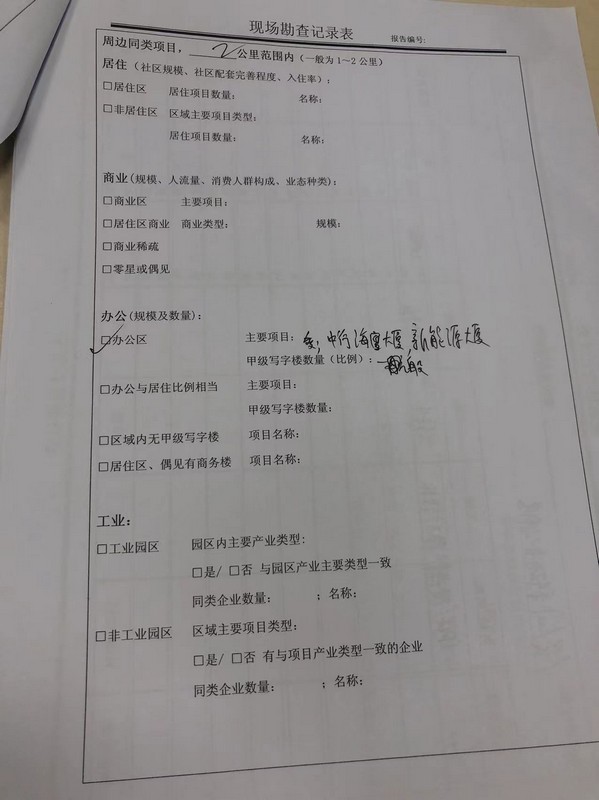 现场勘查记录表
报告编号:
周边同类项目，2公里范围内（一般为1～2公里）
居住（社区规模、社区配套完善程度、入住率）:
□居住区 居住项目数量: 名称:
□非居住区 区域主要项目类型:
居住项目数量: 名称:
商业(规模、人流量、消费人群构成、业态种类):
□商业区 主要项目:
□居住区商业 商业类型: 规模:
□商业稀疏
□零星或偶见
办公(规模及数量):
□✓办公区 主要项目: 中行海 大厦, 新能源大厦
甲级写字楼数量（比例）: 一般
□办公与居住比例相当 主要项目:
甲级写字楼数量:
□区域内无甲级写字楼 项目名称:
□居住区、偶见有商务楼 项目名称:
工业:
□工业园区 园区内主要产业类型:
□是/ □否 与园区产业主要类型一致
同类企业数量: ; 名称:
□非工业园区 区域主要项目类型:
□是/ □否 有与项目产业类型一致的企业
同类企业数量: ; 名称: